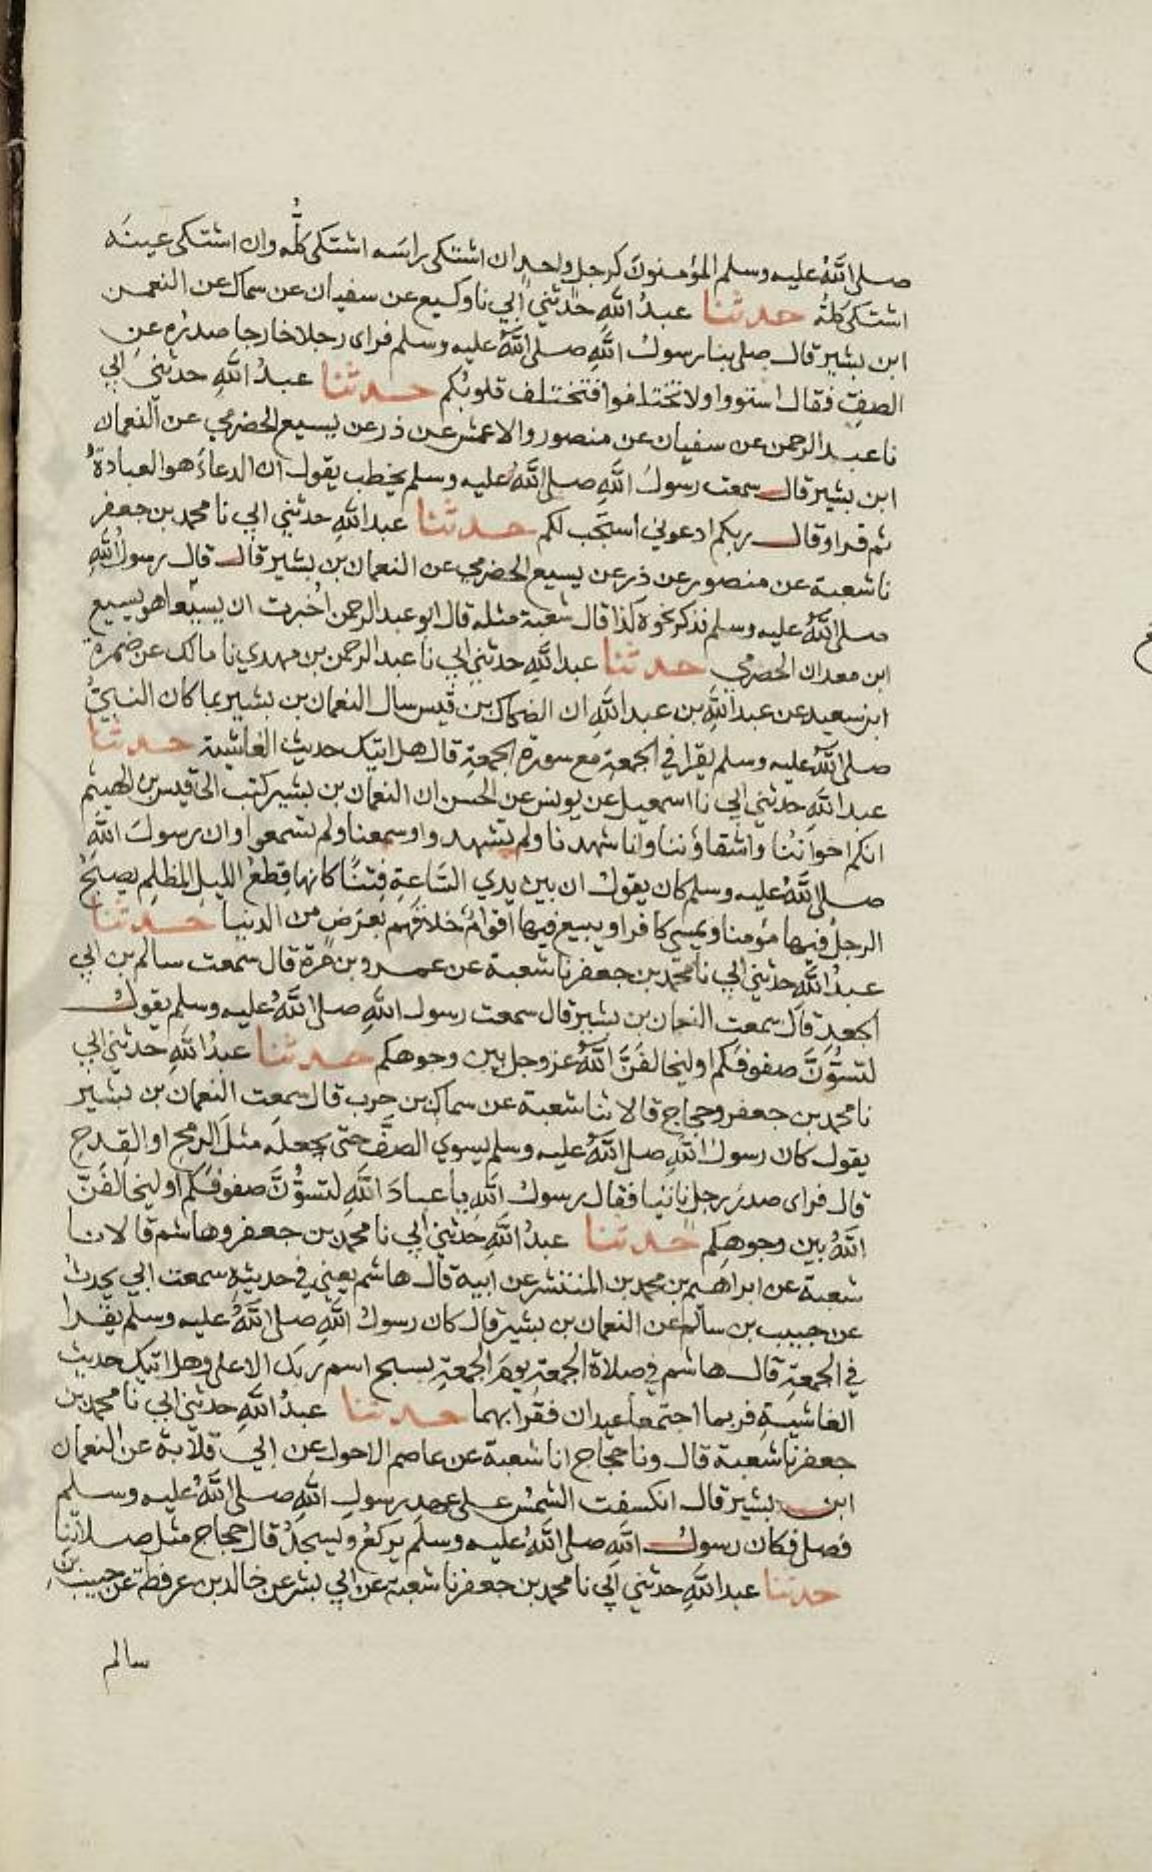 صلى اللهُ عليه وسلم المؤمنون كرجل واحد ان اشتكى راسه اشتكى كلُّه وان اشتكى عينه
اشتكى كلهُ حدثنا عبدُ اللهِ حدثني ابي نا وكيع عن سفيان عن سماك عن النعمن
ابن بشير قال صلى بنا رسولُ اللهِ صلى اللهُ عليه وسلم فراى رجلا خارجا صدره عن
الصف فقال استووا ولا تختلفوا فتختلف قلوبُكم حدثنا عبدُ اللهِ حدثني ابي
نا عبد الرحمن عن سفيان عن منصور والاعمش عن ذر عن يسيع الحضرمي عن النعمان
ابن بشير قال سمعت رسولُ اللهِ صلى اللهُ عليه وسلم يخطب يقول ان الدعاءَ هو العبادةُ
ثم قرا وقال ربكم ادعوني استجب لكم حدثنا عبد اللهِ حدثني ابي نا محمد بن جعفر
نا شعبة عن منصور عن ذر عن يسيع الحضرمي عن النعمان بن بشير قال قال رسولُ اللهِ
صلى اللهُ عليه وسلم فذكر نحوه كذا قال شعبة مثله قال ابو عبد الرحمن اُخبرت ان يسيعا هو يسيع
ابن معدان الحضرمي حدثنا عبد اللهِ حدثني ابي نا عبد الرحمن بن مهدي نا مالك عن ضمرة
ابن سعيد عن عبد اللهِ بن عبد اللهِ ان الضحاك بن قيس سال النعمان بن بشير بما كان النبيُّ
صلى اللهُ عليه وسلم يقرا في الجمعةِ مع سورة الجمعةِ قال هل اتيك حديث الغاشية حدثنا
عبد اللهِ حدثني ابي نا اسمعيل عن يونس عن الحسن ان النعمان بن بشير كتب الى قيس بن الهيثم
انكم اخوانُنا واشقاؤننا وانا شهدنا ولم تشهدوا وسمعنا ولم تسمعوا وان رسولَ اللهِ
صلى اللهُ عليه وسلم كان يقول ان بين يدي السَّاعةِ فِتنًا كانها قِطعُ الليل المظلم يصبحُ
الرجلُ فيها مؤمنا ويمسي كافرا ويبيع فيها اقوامٌ خلاقهم بعرَض من الدنيا حدثنا
عبدُ اللهِ حدثني ابي نا محمد بن جعفر نا شعبة عن عمرو بن مرة قال سمعت سالم بن ابي
الجعد قال سمعت النعمان بن بشير قال سمعت رسول اللهِ صلى اللهُ عليه وسلم يقول
لتسوُّنَّ صفوفَكم او ليخالفَنَّ اللهُ عز وجل بين وجوهكم حدثنا عبدُ اللهِ حدثني ابي
نا محمد بن جعفر وحجاج قالا ثنا شعبة عن سماك بن حرب قال سمعت النعمان بن بشير
يقول كان رسولُ اللهِ صلى اللهُ عليه وسلم يسوي الصفَّ حتى يجعله مثلَ الرمح او القدح
قال فراى صدرَ رجل ناتيا فقال رسولُ اللهِ يا عبادَ اللهِ لتسوُّنَّ صفوفَكم او ليخالفَنَّ
اللهُ بين وجوهِكم حدثنا عبدُ اللهِ حدثني ابي نا محمد بن جعفر وهاشم قالا نا
شعبة عن ابراهيم بن محمد بن المنتشر عن ابيه قال هاشم يعني في حديثه سمعت ابي يحدثُ
عن حبيب بن سالم عن النعمان بن بشير قال كان رسولُ اللهِ صلى اللهُ عليه وسلم يقرا
في الجمعةِ قال هاشم في صلاة الجمعةِ يومَ الجمعةِ بسبح اسم ربك الاعلى وهل اتيك حديث
الغاشيةِ فربما اجتمعَ عيدان فقرا بهما حدثنا عبدُ اللهِ حدثني ابي نا محمد بن
جعفر نا شعبة قال ونا حجاج انا شعبة عن عاصم الاحول عن ابي قلابة عن النعمان
ابن بشير قال انكسفت الشمسُ على عهد رسول اللهِ صلى اللهُ عليه وسلم
فصلى فكان رسولُ اللهِ صلى اللهُ عليه وسلم يركعُ ويسجدُ قال حجاج مثل صلاتنا
حدثنا عبد اللهِ حدثني ابي نا محمد بن جعفر نا شعبة عن ابي بشر عن خالد بن عرفطة عن حبيب بن
سالم